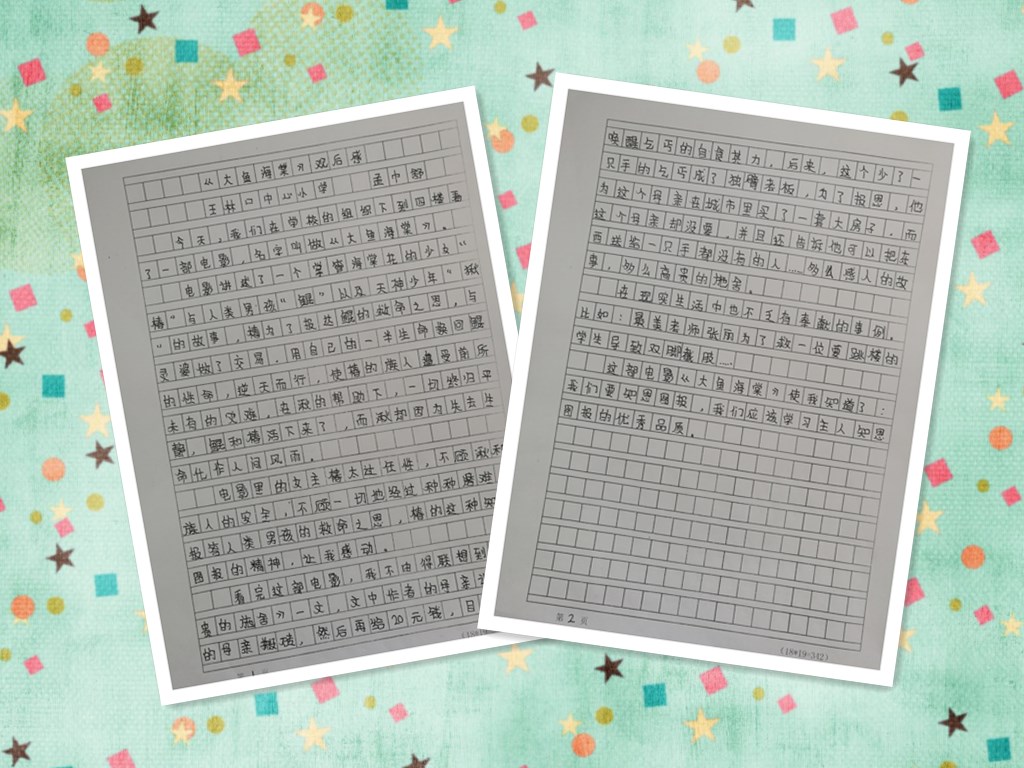 《大鱼海棠》观后感
玉林口中心小学 孟中舒
今天，我们在学校的组织下到四楼看
了一部电影，名字叫做《大鱼海棠》。
电影讲述了一个掌管海棠花的少女“
椿”与人类男孩“鲲”以及天神少年“湫
”的故事，椿为了报达鲲的救命之恩，与
灵婆做了交易，用自己的一半生命换回鲲
的性命，逆天而行，使椿的族人遭受前所
未有的灾难，在湫的帮助下，一切终归平
静，鲲和椿活下来了，而湫却因为失去生
命化作人间风雨。
电影里的女主椿太过任性，不顾湫和
族人的安全，不顾一切地经过种种磨难
报答人类男孩的救命之恩，椿的这种知
图报的精神，让我感动。
看完这部电影，我不由得联想到
贵的施舍》一文，文中作者的母亲
的母亲搬砖，然后再给20元钱，目
唤醒乞丐的自食其力，后来，这个少了一
只手的乞丐成了独臂老板，为了报恩，他
为这个母亲在城市里买了一套大房子，而
这个母亲却没要，并且还告诉他可以把东
西送给一只手都没有的人……多么感人的故
事，多么高贵的施舍。
在现实生活中也不乏有奉献的事例。
比如：最美老师张丽为了救一位爱跳椿的
学生导致双脚截肢……
这部电影《大鱼海棠》使我知道了：
我们要知恩图报，我们应该学习主人知恩
图报的优秀品质。
第 2 页
(18*19=342)